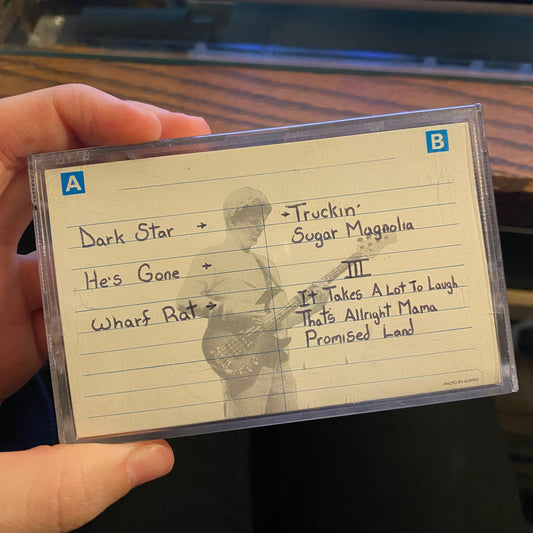 A
B
Dark Star →
He's Gone →
Wharf Rat →
→Truckin'
Sugar Magnolia
III
It Takes A Lot To Laugh
That's Allright Mama
Promised Land